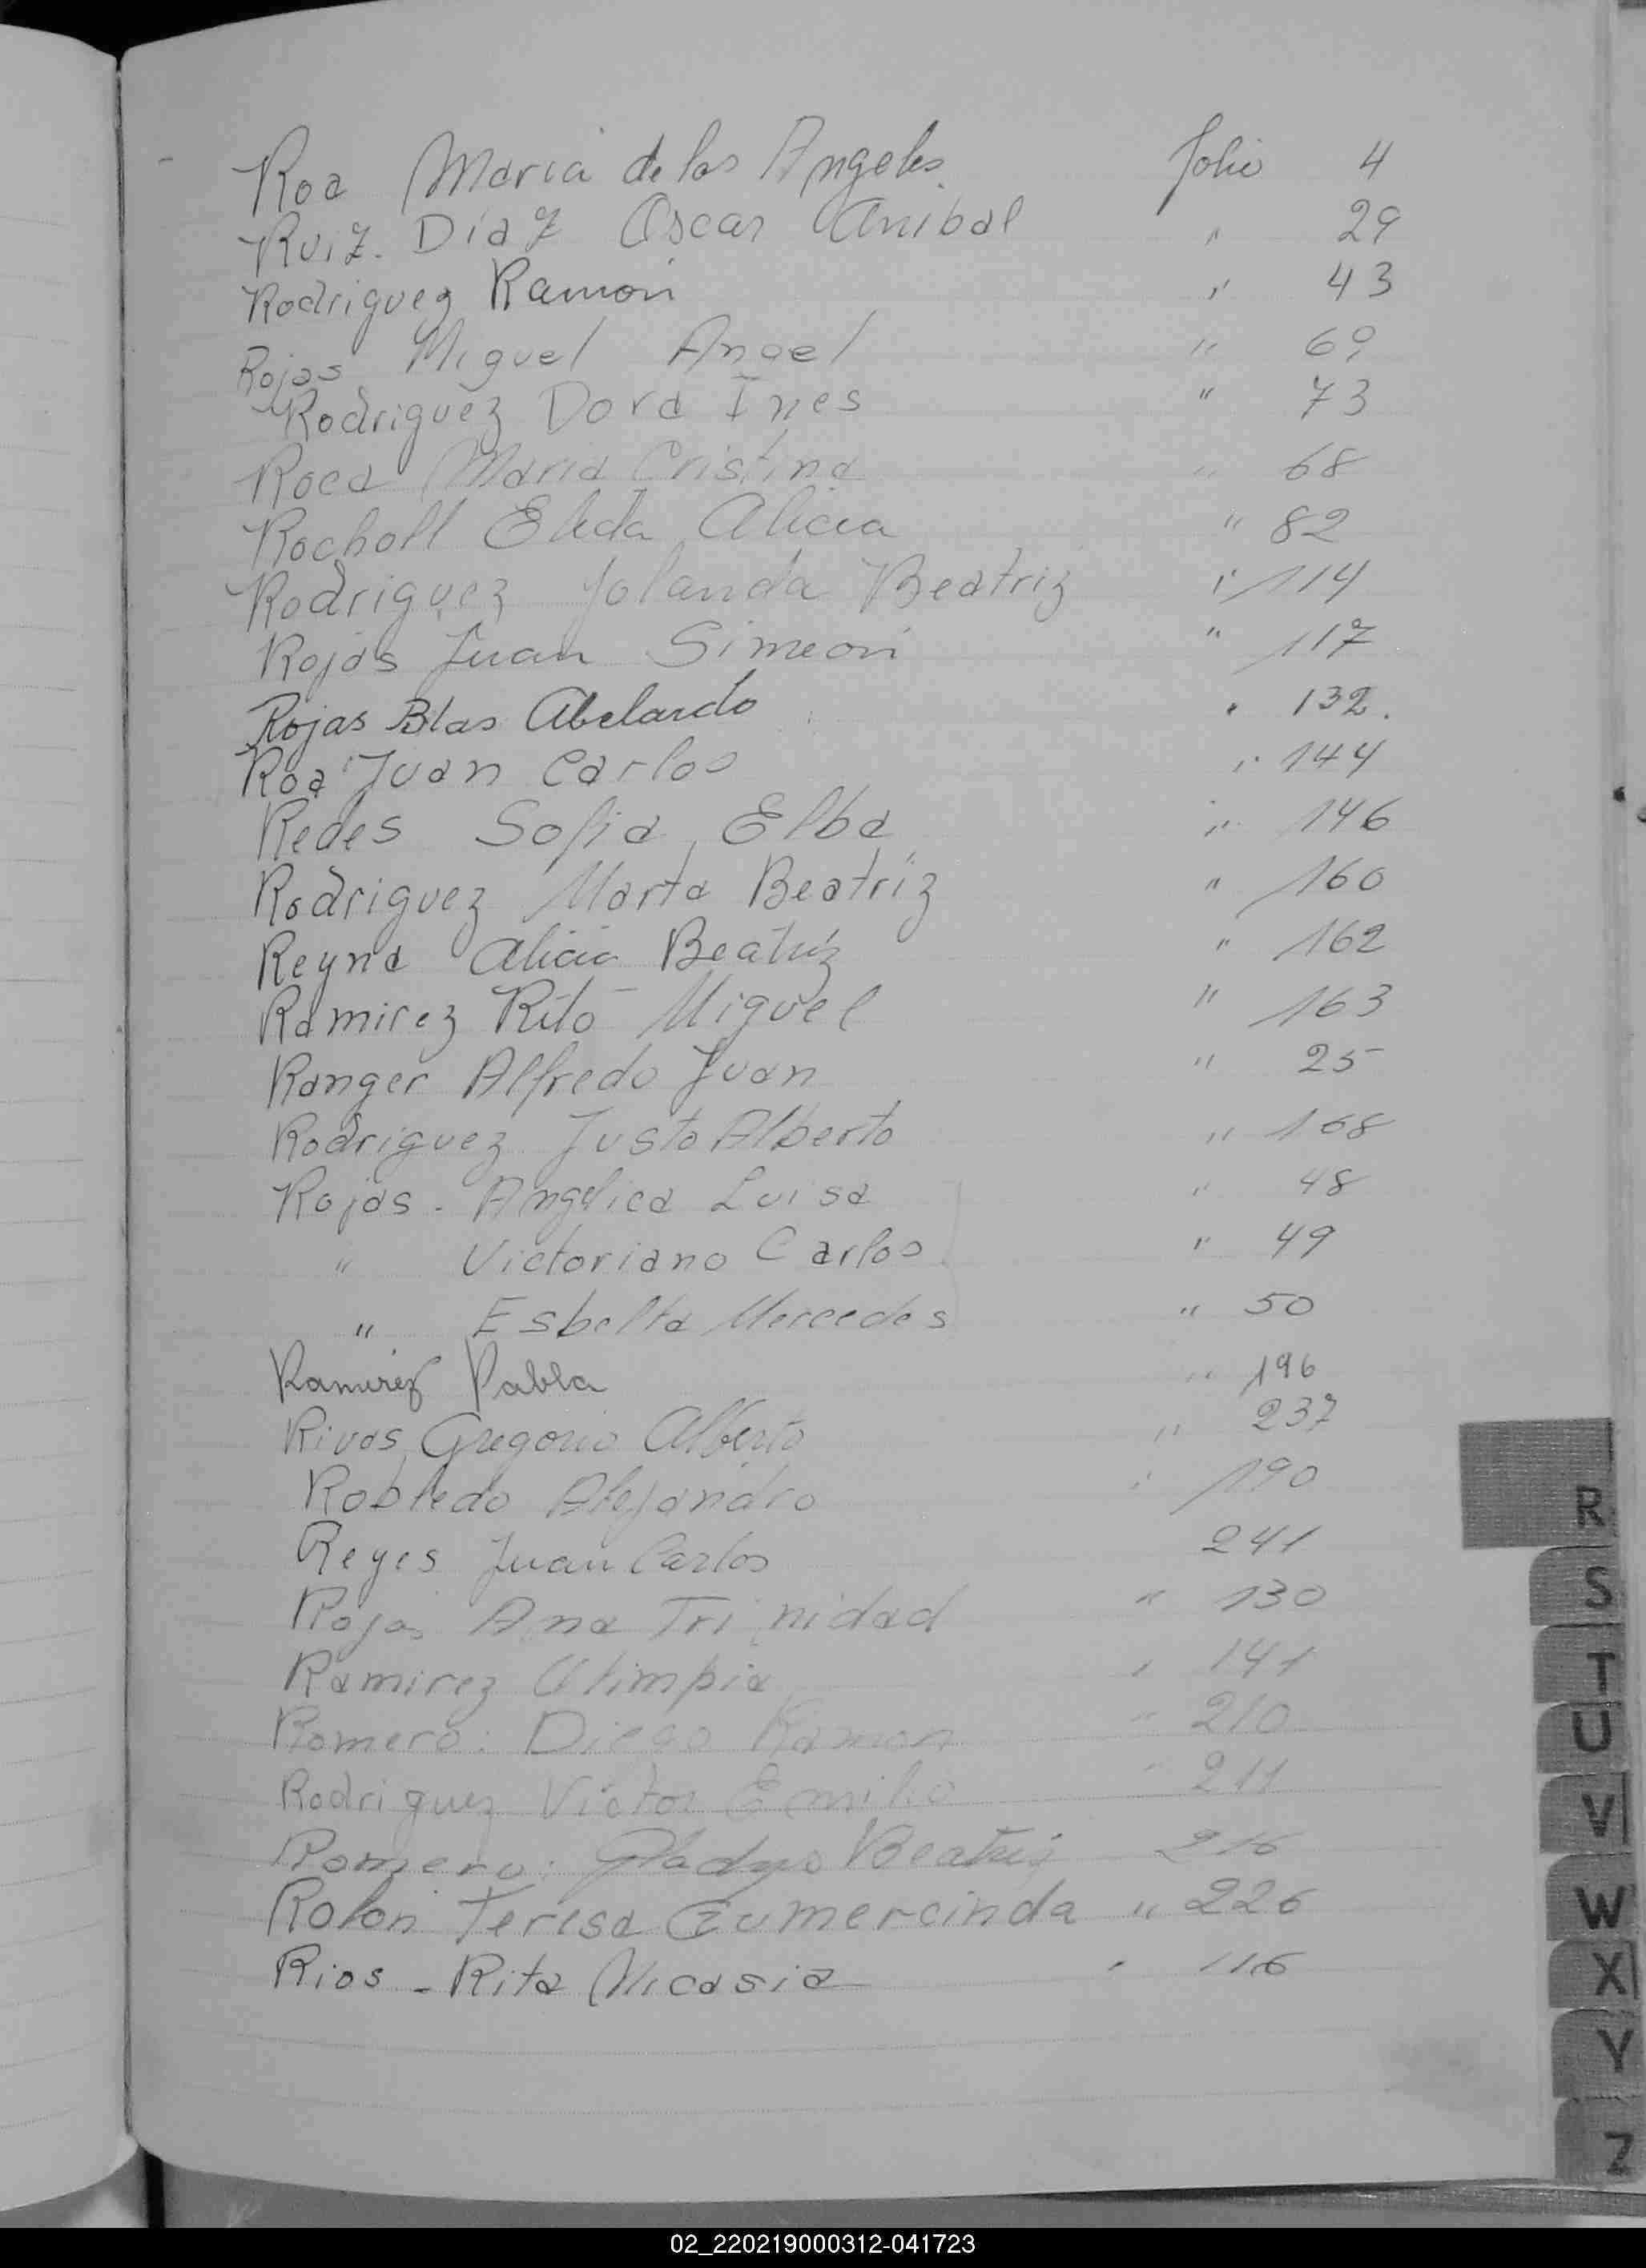 Roa Maria de los Angeles. folio 4
Ruiz. Diaz Oscar Anibal " 29
Rodriguez Ramon " 43
Rojas Miguel Angel " 69
Rodriguez Dora Ines " 73
Roca Maria Cristina " 68
Rocholl Elida Alicia " 82
Rodriguez Yolanda Beatriz " 114
Rojas Juan Simeon " 117
Rojas Blas Abelardo " 132.
Roa Juan Carlos " 144
Redes Sofia Elba " 146
Rodriguez Marta Beatriz " 160
Reyna Alicia Beatriz " 162
Ramirez Rito Miguel " 163
Ranger Alfredo Juan " 25
Rodriguez Justo Alberto " 168
Rojas - Angelica Luisa " 48
" Victoriano Carlos " 49
" Esbelta Mercedes " 50
Ramirez Pabla " 196
Rivas Gregorio Alberto " 237
Robledo Alejandro " 190
Reyes Juan Carlos 241
Rojas Ana Trinidad " 130
Ramirez Olimpia " 141
Romero: Diego Ramon " 210
Rodriguez Victor Emilio " 211
Romero: Gladys Beatriz 216
Rolon Teresa Gumercinda " 226
Rios - Rita Nicasia " 116
R
S
T
U
V
W
X
Y
Z
02_220219000312-041723